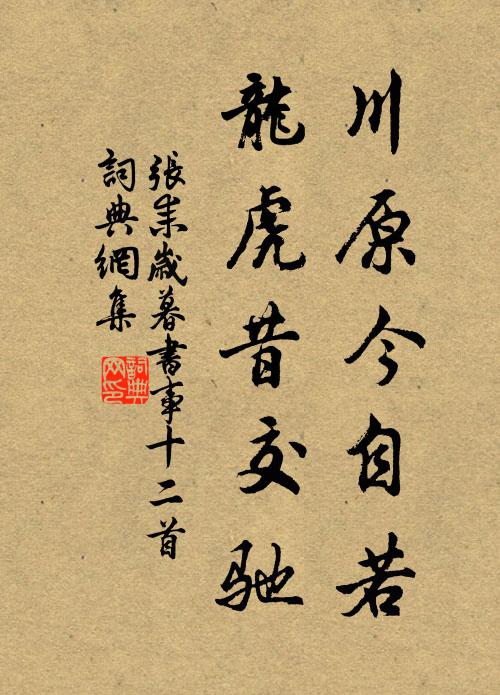 川原今自若
龍虎昔交驰
張耒歲暮書事十二首
詞典網集
詞典
网印